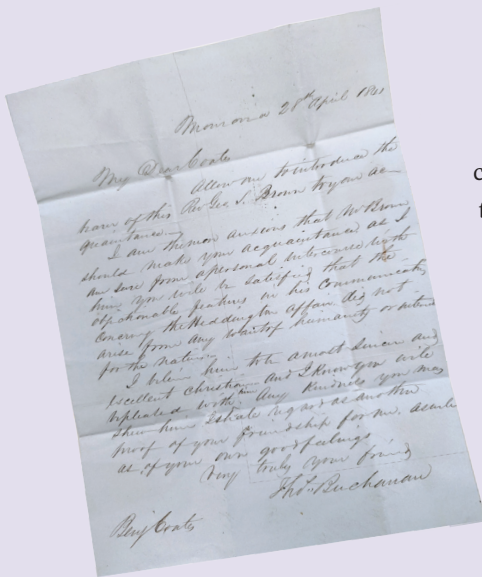 Monrovia 28th April 1840
My Dear Coates
Allow me to introduce the
bearer of this Rev Geo S. Brown to your ac
quaintance.
I am the more anxious that Mr Brown
should make your acquaintance as I
am sure from a personal intercourse with
him you will be satisfied that the
objectionable features in his communicatn
concerng the Heddington affair did not
arise from any want of humanity or
for the natives
I believe him to be a most sincere and
excellent christian and I know you will
be pleased with him Any kindness you may
shew him I shall regard as another
proof of your friendship for me. as well
as of your own good feelings
Very truly your friend
Thos Buchanan
Benj Coates
c
t